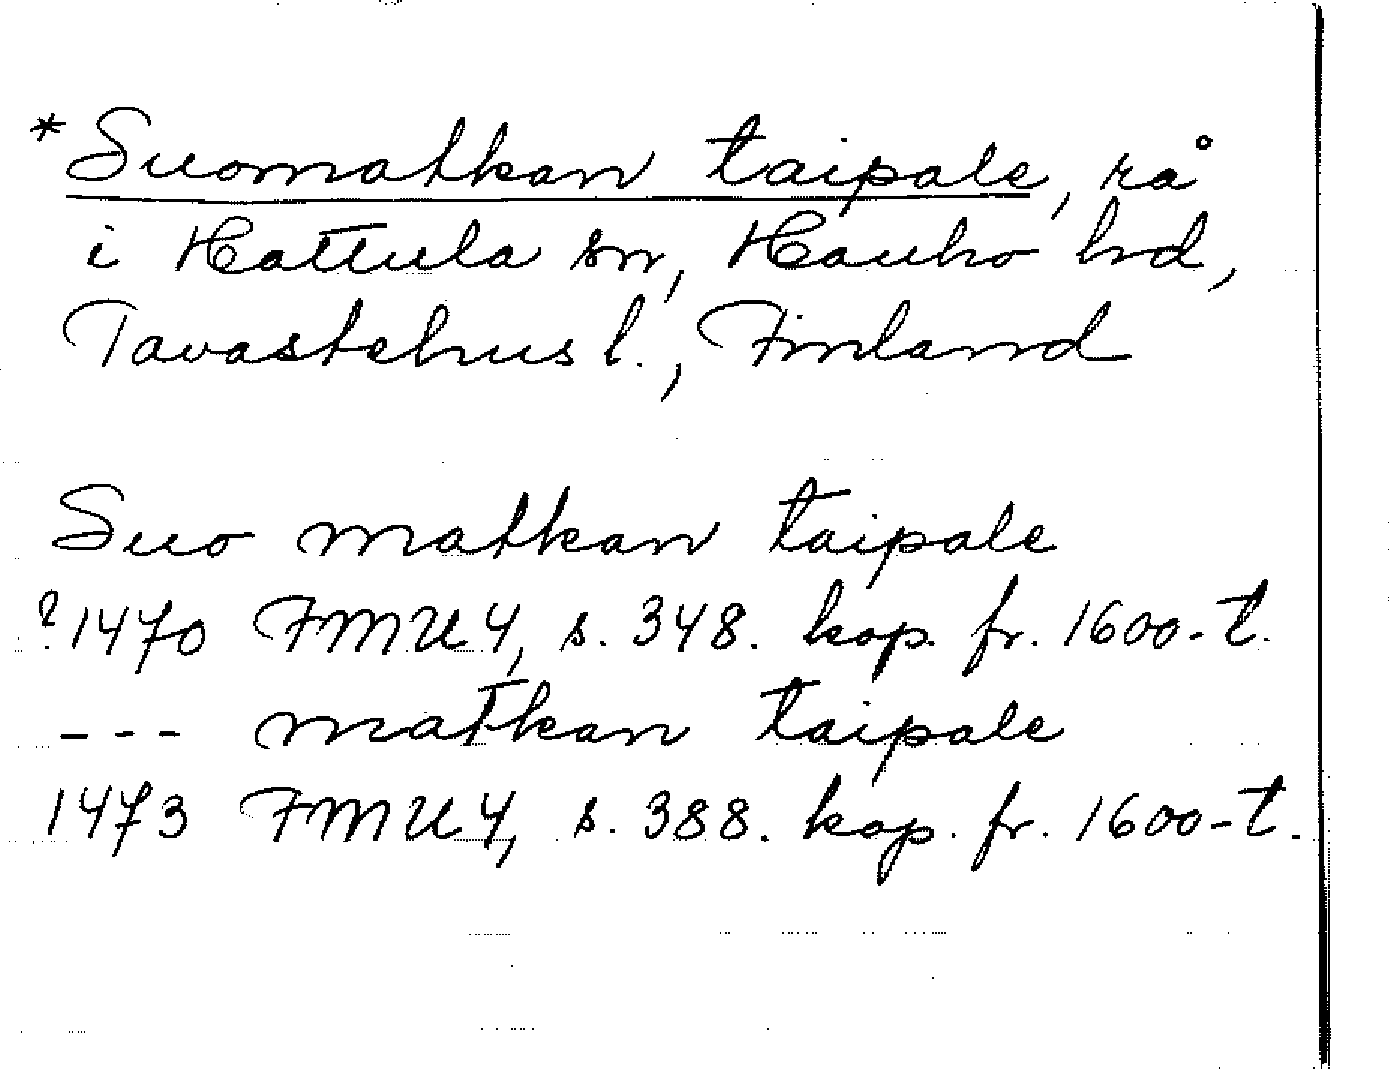 *Suomatkan taipale, rå
i Hattula sn, Hauho hd,
Tavastehus l., Finland
Suo matkan taipale
?1470 FMU 4, s. 348. kop. fr. 1600-t.
--- matkan taipale
1473 FMU 4, s. 388. kop. fr. 1600-t.